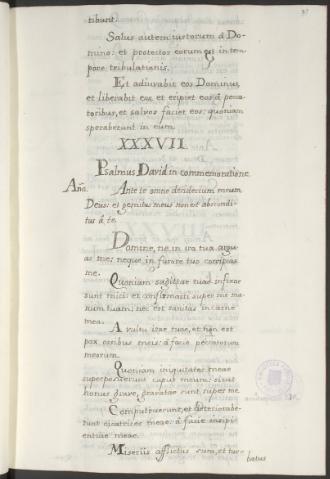 tibunt.
Salus autem iustorum á Do-
mino: et protector eorum est in tem
pore tribulationis.
Et adiuvabit eos Dominus,
et liberabit eos et eripiet eos á pecca
toribus, et salvos faciet eos: quoniam
speraberunt in eum.
XXXVII
Psalmus David in commemoratione
Año. Ante te omne desiderium meum
Deus: et gemitus meus non est abscondi
tus á te.
Domine, ne in ira tua argu
as me: neque in furore tuo corripias
me.
Quoniam sagittae tuae infixae
sunt mici: et confirmasti super me ma
num tuam: nec est sanitas in carne
mea.
A vultu irae tuae, et non est
pax ossibus meis: á facie peccatorum
meorum.
Quoniam iniquitates meae
superposuerunt caput meum: sicut
honus grave, gravatae sunt super me.
Computruerunt, et deteriorabe-
runt cicatrices meae: á facie insipi
entiae meae.
Miseriis afflictus sum, et tur
batus